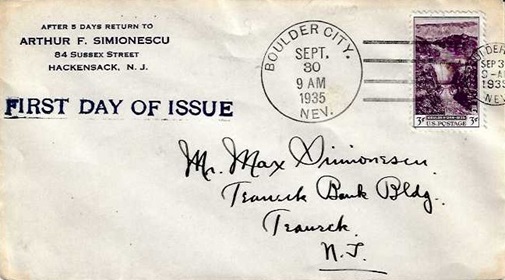 AFTER 5 DAYS RETURN TO
ARTHUR F. SIMIONESCU
84 SUSSEX STREET
HACKENSACK, N. J.
FIRST DAY OF ISSUE
BOULDER CITY.
SEPT.
30
9 AM
1935
NEV.
3¢ 3¢
U.S. POSTAGE
SEP 3
9-A
1935
NEV
Mr. Max Simionescu
Teaneck Bank Bldg.
Teaneck
N.J.